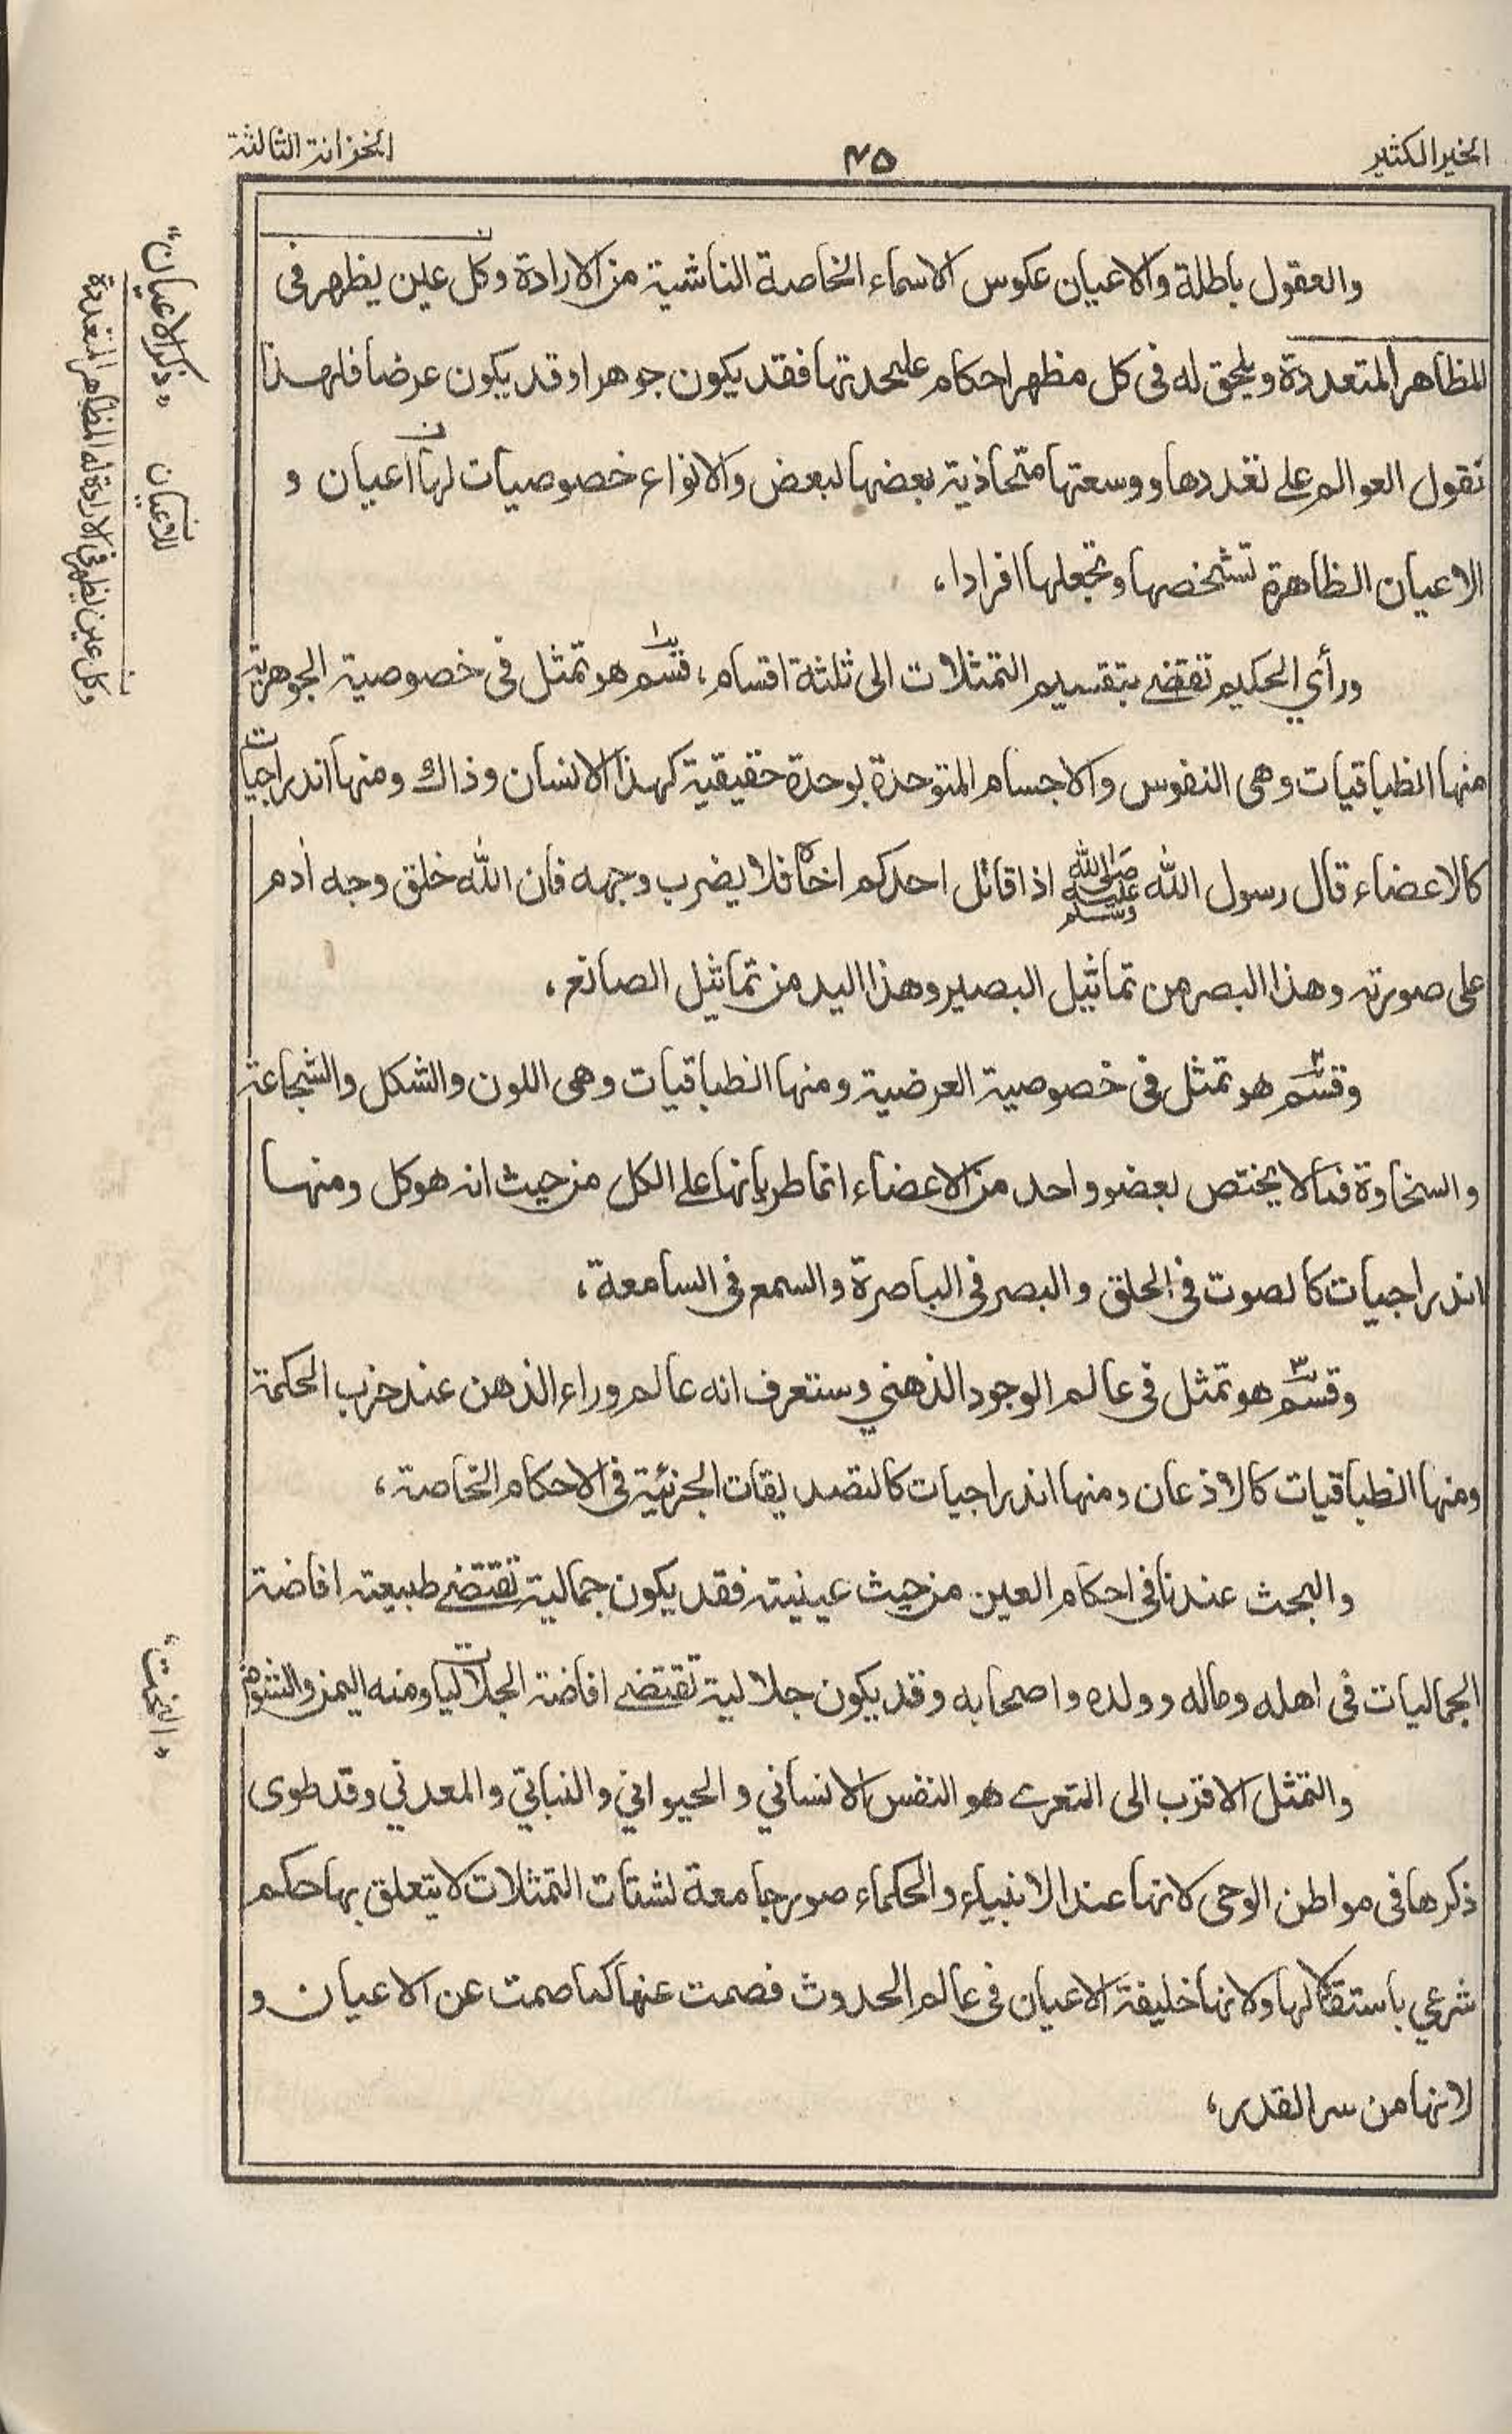 الخير الكثير
٤٥
الخزانة الثالثة
والعقول باطلة والاعيان عكوس الاسماء الخاصة الناشية من الارادة وكل عين يظهر فى
المظاهر المتعددة ويلحق له فى كل مظهر احكام عليحدتها فقد يكون جوهرا وقد يكون عرضا فلهذا
نقول العوالم على تعددها ووسعتها متحاذية بعضها لبعض والانواع خصوصيات لها اعيان و
الاعيان الظاهرة تشخصها وتجعلها افرادا،
ورأي الحكيم تقضے بتقسيم التمثلات الى ثلثة اقسام، قسم هو تمثل فى خصوصية الجوهرية
منها انطباقيات وهى النفوس والاجسام المتوحدة بوحدة حقيقية كهذا الانسان وذاك ومنها اندراجيات
كالاعضاء قال رسول الله صلى الله عليه وسلم اذا قاتل احدكم اخاه فلا يضرب وجهه فان الله خلق وجه أدم
على صورته وهذا البصر من تماثيل البصير وهذا اليد من تماثيل الصانع،
وقسم ٢ هو تمثل فى خصوصية العرضية ومنها انطباقيات وهى اللون والشكل والشجاعة
والسخاوة فما لا يختص بعضو واحد من الاعضاء انما طريانها على الكل من حيث انه هو كل ومنها
اندراجيات كالصوت فى الحلق والبصر فى الباصرة والسمع فى السامعة،
وقسم ٣ هو تمثل فى عالم الوجود الذهني وستعرف انه عالم وراء الذهن عند حزب الحكمة
ومنها انطباقيات كالاذعان ومنها اندراجيات كالتصديقات الجزئية فى الاحكام الخاصة،
والبحث عندنا فى احكام العين من حيث عينيته فقد يكون جمالية تقتضے طبيعته افاضة
الجماليات فى اهله وماله وولده واصحابه وقد يكون جلالية تقتضے افاضة الجلاليات ومنه اليمن والشوم
والتمثل الاقرب الى التعرے هو النفس الانساني والحيواني والنباتي والمعدني وقد طوى
ذكرها فى مواطن الوحى لانها عند الانبياء والحكماء صور جامعة لشتات التمثلات لا يتعلق بها حكم
شرعي باستقلالها ولانها خليفة الاعيان فى عالم الحدوث فصمت عنها كما صمت عن الاعيان و
لانها من سر القدر،
"ذكر الاعيان"
للاعيان
وكل عين يظهر فى الارادة له المظاهر المتعددة
"البخت"